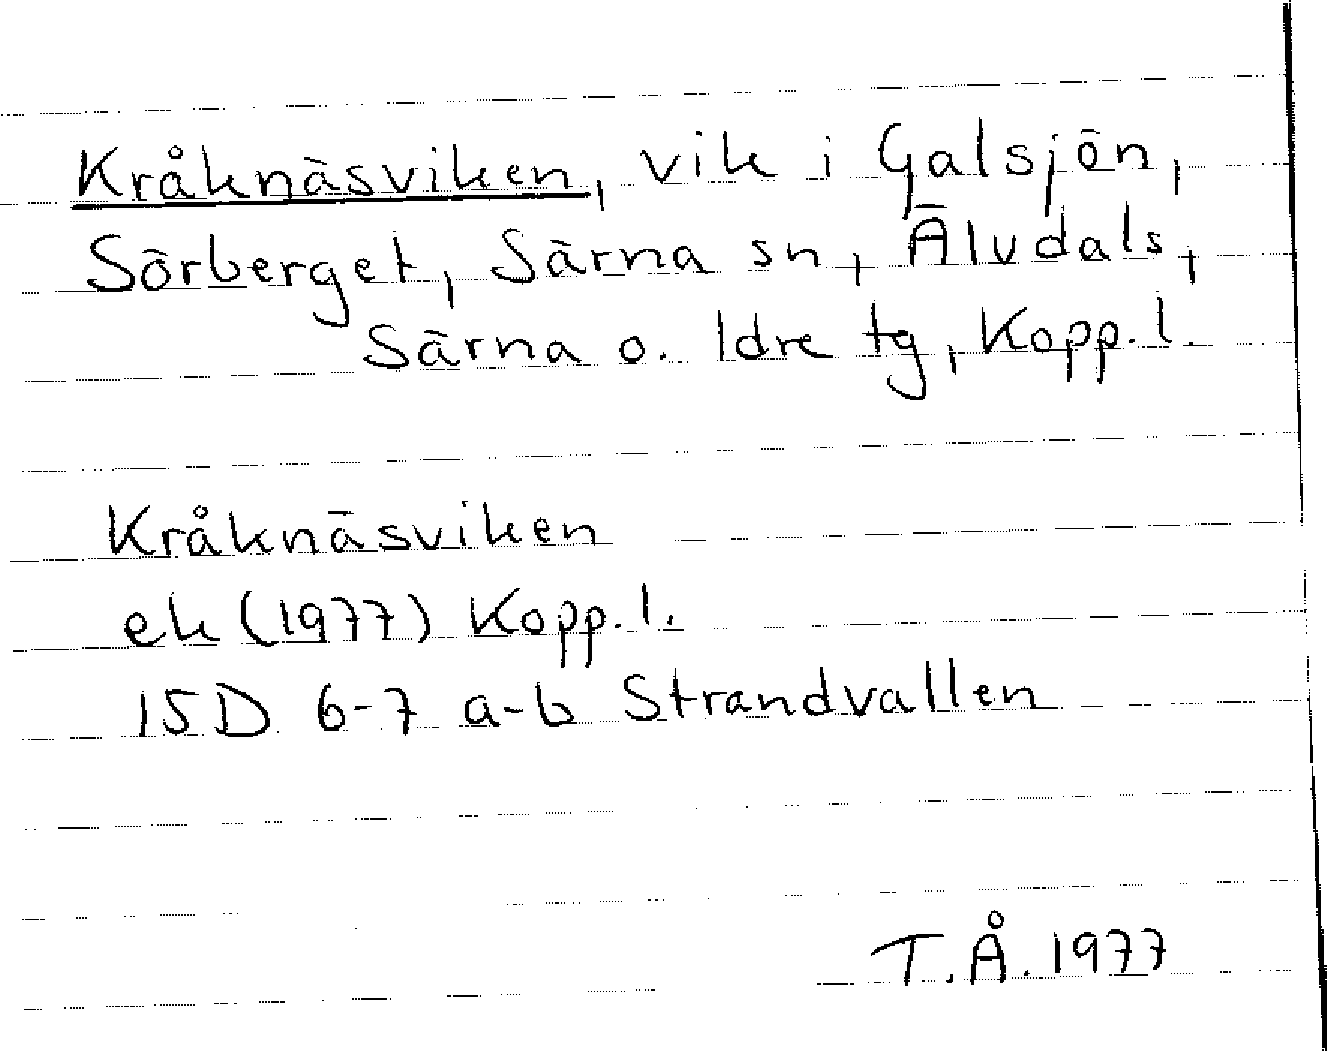 Kråknäsviken, vik i Galsjön,
Sörberget, Särna sn, Älvdals,
Särna o. Idre tg, Kopp.l.
Kråknäsviken
ek (1977) Kopp.l.
15D 6-7 a-b Strandvallen
T.Å. 1977